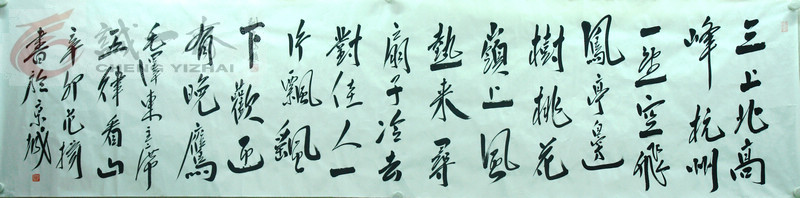 三上北高
峰杭州
一望空飛
鳳亭邊
樹桃花
嶺上風
熱来尋
扇子冷去
對佳人一
片飄飄
下歡迎
有晚鷹
毛澤東主席
五律看山
辛卯
書於京城
誠一斋
CHENG YIZHAI